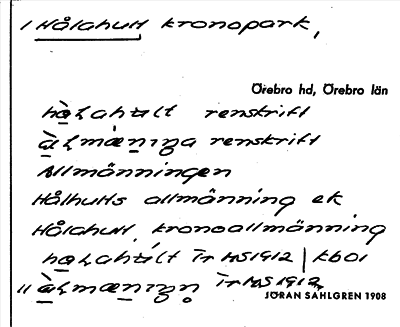 / Hålahult kronopark,
Örebro hd, Örebro län
hàlahult renskrift
àlmä́nıŋa renskrift
Allmänningen
Hålhults allmänning ek
Hålahult, kronoallmänning
halahúlt Ir HS1912 | kbol
" àlmänıŋo Ir HS1912
JÖRAN SAHLGREN 1908